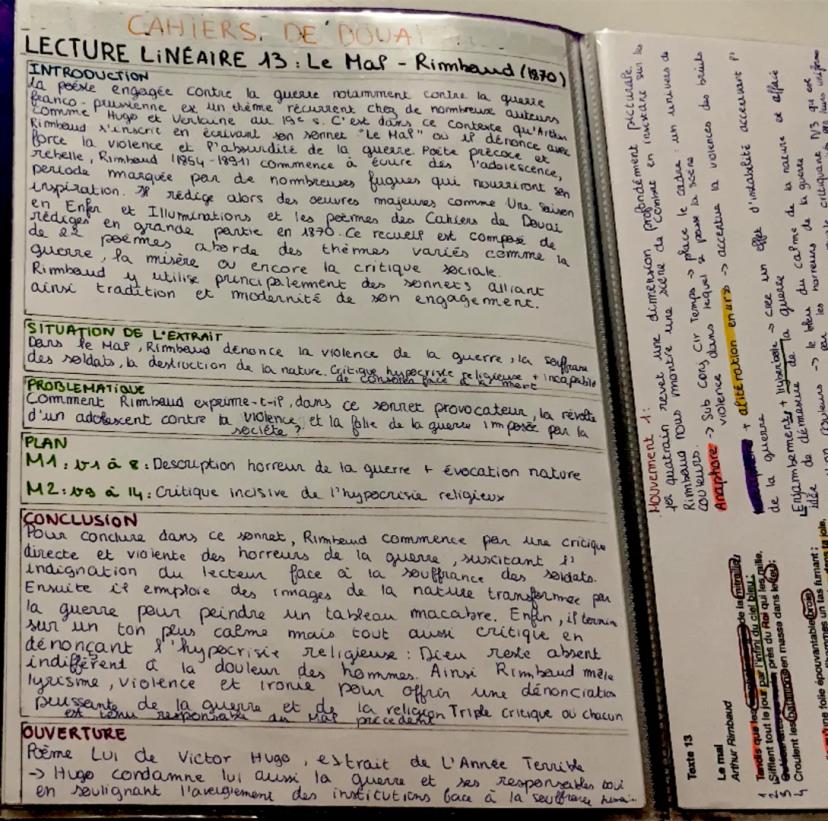 CAHIERS DE DOUAI
LECTURE LINÉAIRE 13 : Le Mal - Rimbaud (1870)
INTRODUCTION
La poésie engagée contre la guerre notamment contre la guerre
franco-prusienne ex un thème récurrent chez de nombreux auteurs
comme Hugo et Verlaine au 19e s. C'est dans ce contexte qu'Arthur
Rimbaud s'inscrit en écrivant son sonnet "Le Mal" où il dénonce avec
force la violence et l'absurdité de la guerre. Poète précoce et
rebelle, Rimbaud (1854-1891) commence à écrire dès l'adolescence,
période marquée par de nombreuses fugues qui nourriront son
inspiration. Il rédige alors des oeuvres majeures comme Une Saison
en Enfer et Illuminations et les poèmes des Cahiers de Douai
rédigés en grande partie en 1870. Ce recueil est composé de
de 22 poèmes aborde des thèmes variés comme la
guerre, la misère ou encore la critique sociale.
Rimbaud y utilise principalement des sonnets alliant
ainsi tradition et modernité de son engagement.
SITUATION DE L'EXTRAIT
Dans le Mal, Rimbaud dénonce la violence de la guerre, la souffrance
des soldats, la destruction de la nature. Critique hypocrisie religieuse + incapable
de consoler face à la mort
PROBLEMATIQUE
Comment Rimbaud exprime-t-il, dans ce sonnet provocateur, la révolte
d'un adolescent contre la violence et la folie de la guerre imposée par la
société ?
PLAN
M1 : v1 à 8 : Description horreur de la guerre + évocation nature
M2 : v9 à 14 : Critique incisive de l'hypocrisie religieux
CONCLUSION
Pour conclure dans ce sonnet, Rimbaud commence par une critique
directe et violente des horreurs de la guerre, suscitant l'
indignation du lecteur face à la souffrance des soldats.
Ensuite il emploie des images de la nature transformée par
la guerre pour peindre un tableau macabre. Enfin, il termine
sur un ton plus calme mais tout aussi critique en
dénonçant l'hypocrisie religieuse : Dieu reste absent
indifférent à la douleur des hommes. Ainsi Rimbaud mêle
lyrisme, violence et ironie pour offrir une dénonciation
puissante de la guerre et de la religion Triple critique où chacun
est tenu responsable du Mal précédent
OUVERTURE
Poème Lui de Victor Hugo, extrait de L'Année Terrible
-> Hugo condamne lui aussi la guerre et ses responsables
en soulignant l'aveuglement des institutions face à la souffrance humaine
Mouvement 1 :
quatrain revet une dimension profondément picturale.
Rimbaud nous montre une scène de combat en insistant sur les
couleurs.
Anaphore -> Sub conj Cir Temps -> place le cadre, un univers de
violence dans lequel se passe la scène
+ alitération en urs -> accentue la violences des bruits
de la guerre
Enjambements + hyperbole -> crée un effet d'instabilité accentuant l'
idée de démesure de la guerre
couleurs -> le bleu du calme de la nature
par les horreurs de la guerre
Texte 13
Le mal
Arthur Rimbaud
1 Tandis que les de la mitraille
2 Sifflent tout le jour par l'infini du ciel bleu ;
3 près du Roi qui les raille,
4 Croulent les bataillons en masse dans le feu ;
une folie épouvantable
un tas fumant ;